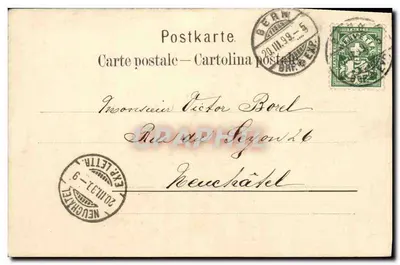 BERN
20.III.99.-5
BRF. EXP.
Postkarte.
Carte postale — Cartolina postale
HELVETIA
5
Monsieur Victor Borel
Rue du Seyon 26
Neuchâtel
NEUCHÂTEL
20.III.99.-9
EXP. LETTR.